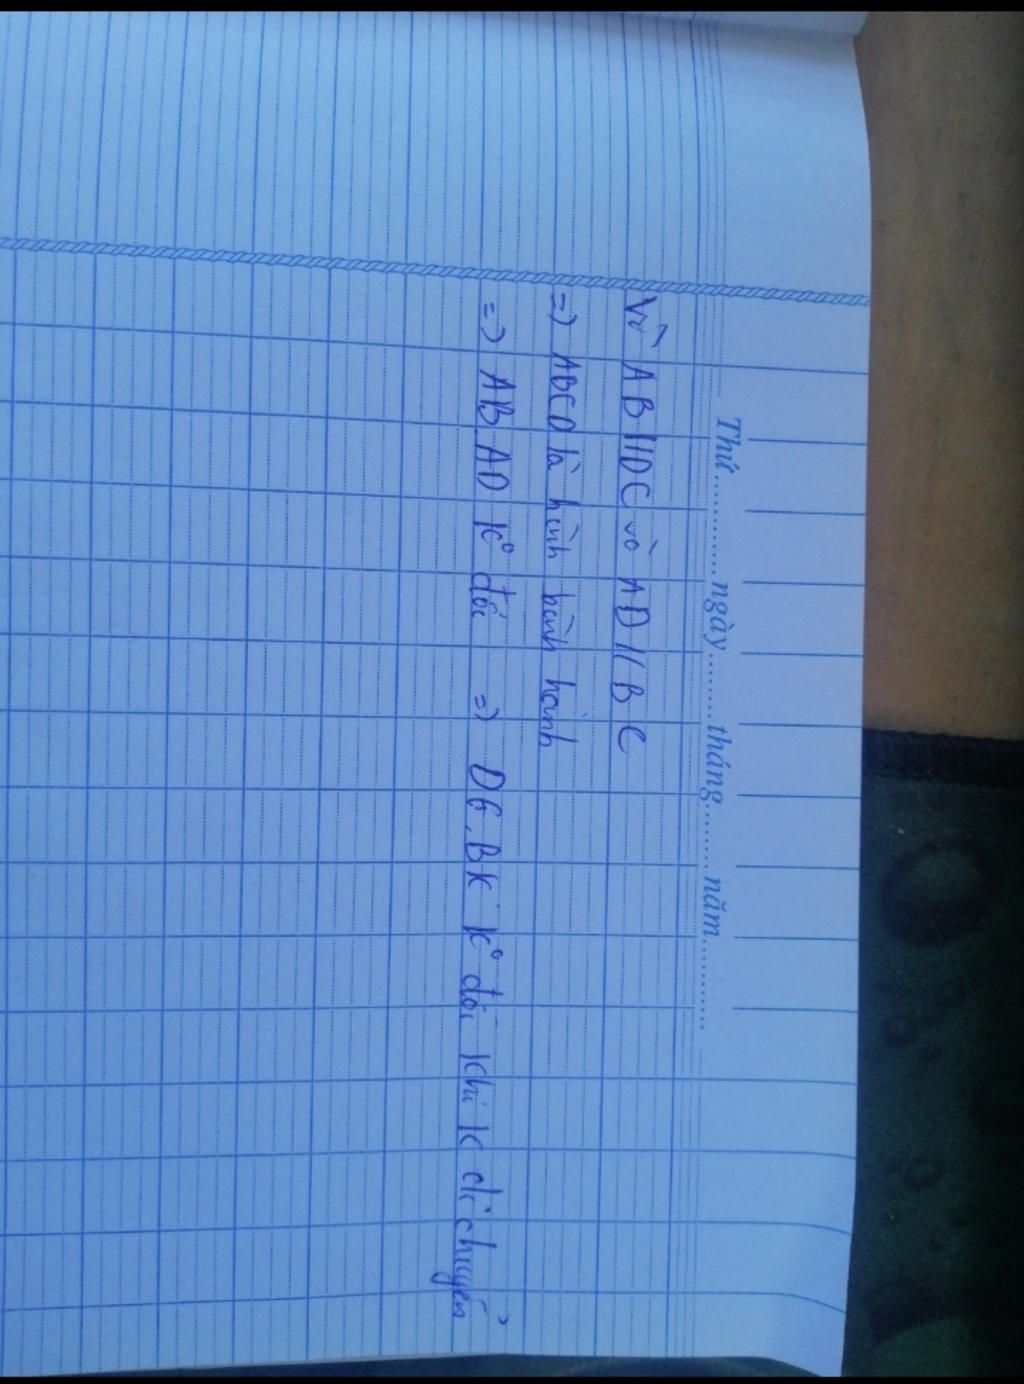 Thứ ........... ngày ........ tháng ........ năm ............
Vì AB // DC và AD // BC
=) ABCD là hình bình hành
=) AB AD K° đổi =) DG.BK K° đổi khi K di chuyển